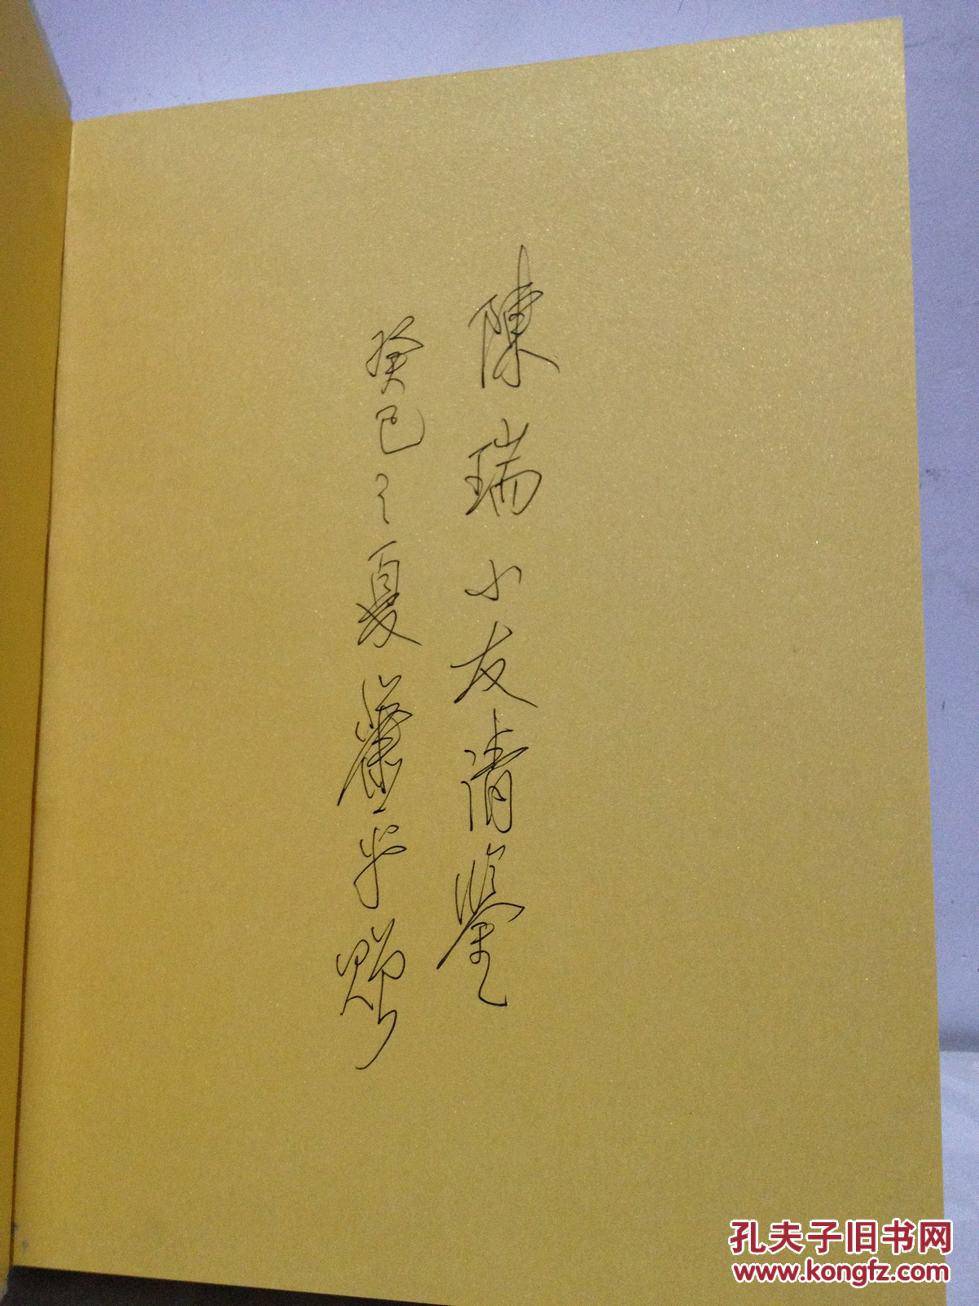 陳瑞小友清鑒
癸巳之夏 平贈
孔夫子旧书网
www.kongfz.com